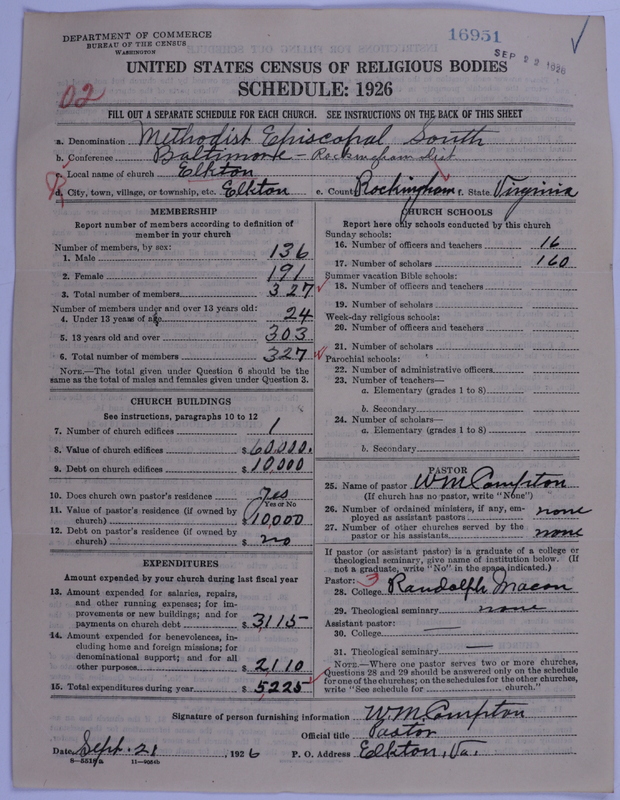 DEPARTMENT OF COMMERCE
BUREAU OF THE CENSUS
WASHINGTON
16951
SEP 22 1926
02
UNITED STATES CENSUS OF RELIGIOUS BODIES
SCHEDULE: 1926
FILL OUT A SEPARATE SCHEDULE FOR EACH CHURCH. SEE INSTRUCTIONS ON THE BACK OF THIS SHEET
a. Denomination Methodist Episcopal South
b. Conference Baltimore – Rockingham Dist
c. Local name of church Elkton
d. City, town, village, or township, etc. Elkton e. County Rockingham f. State Virginia
MEMBERSHIP
Report number of members according to definition of
member in your church
Number of members, by sex:
1. Male 136
2. Female 191
3. Total number of members 327
Number of members under and over 13 years old:
4. Under 13 years of age 24
5. 13 years old and over 303
6. Total number of members 327
NOTE.—The total given under Question 6 should be the
same as the total of males and females given under Question 3.
CHURCH BUILDINGS
See instructions, paragraphs 10 to 12
7. Number of church edifices 1
8. Value of church edifices $ 60,000.
9. Debt on church edifices $ 10,000
10. Does church own pastor's residence Yes
Yes or No
11. Value of pastor's residence (if owned by
church) $ 10,000
12. Debt on pastor's residence (if owned by
church) $ no
EXPENDITURES
Amount expended by your church during last fiscal year
13. Amount expended for salaries, repairs,
and other running expenses; for im-
provements or new buildings; and for
payments on church debt $ 3115
14. Amount expended for benevolences, in-
cluding home and foreign missions; for
denominational support; and for all
other purposes $ 2110
15. Total expenditures during year $ 5225
CHURCH SCHOOLS
Report here only schools conducted by this church
Sunday schools:
16. Number of officers and teachers 16
17. Number of scholars 160
Summer vacation Bible schools:
18. Number of officers and teachers
19. Number of scholars
Week-day religious schools:
20. Number of officers and teachers
21. Number of scholars
Parochial schools:
22. Number of administrative officers
23. Number of teachers—
a. Elementary (grades 1 to 8)
b. Secondary
24. Number of scholars—
a. Elementary (grades 1 to 8)
b. Secondary
PASTOR
25. Name of pastor WM Compton
(If church has no pastor, write "None")
26. Number of ordained ministers, if any, em-
ployed as assistant pastors none
27. Number of other churches served by the
pastor or his assistants none
If pastor (or assistant pastor) is a graduate of a college or
theological seminary, give name of institution below. (If
not a graduate, write "No" in the space indicated.)
Pastor: 3
28. College Randolph Macon
29. Theological seminary none
Assistant pastor:
30. College —
31. Theological seminary —
NOTE.—Where one pastor serves two or more churches,
Questions 28 and 29 should be answered only on the schedule
for one of the churches; on the schedules for the other churches,
write "See schedule for church."
Signature of person furnishing information WM. Compton
Official title Pastor
Date Sept. 21, 1926 P. O. Address Elkton, Va.
8—5518a 11—9054b